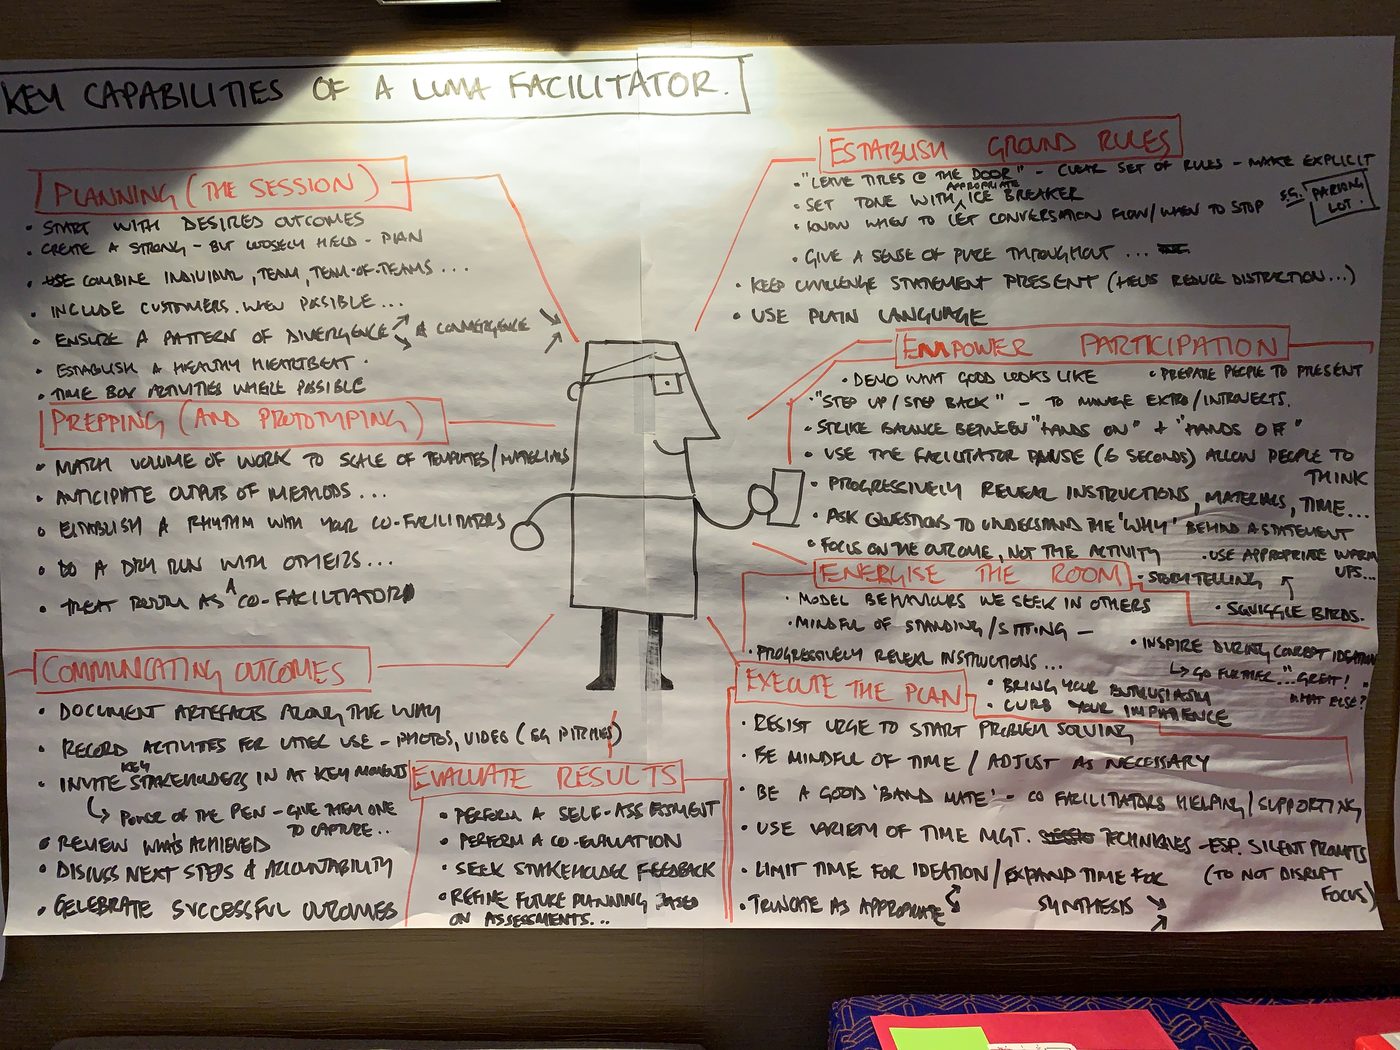 KEY CAPABILITIES OF A LUMA FACILITATOR.
PLANNING (THE SESSION)
• START WITH DESIRED OUTCOMES
• CREATE A STRONG - BUT LOOSELY HELD - PLAN
• COMBINE INDIVIDUAL, TEAM, TEAM-OF-TEAMS ...
• INCLUDE CUSTOMERS WHEN POSSIBLE ...
• ENSURE A PATTERN OF DIVERGENCE & CONVERGENCE
• ESTABLISH A HEALTHY HEARTBEAT.
• TIME BOX ACTIVITIES WHERE POSSIBLE
PREPPING (AND PROTOTYPING)
• MATCH VOLUME OF WORK TO SCALE OF TEMPLATES/MATERIALS
• ANTICIPATE OUTPUTS OF METHODS ...
• ESTABLISH A RHYTHM WITH YOUR CO-FACILITATORS
• DO A DRY RUN WITH OTHERS ...
• TREAT ROOM AS A CO-FACILITATOR
COMMUNICATING OUTCOMES
• DOCUMENT ARTEFACTS ALONG THE WAY
• RECORD ACTIVITIES FOR LATER USE - PHOTOS, VIDEO (EG PITCHES)
• INVITE KEY STAKEHOLDERS IN AT KEY MOMENTS
↳ POWER OF THE PEN - GIVE THEM ONE
TO CAPTURE ..
• REVIEW WHAT'S ACHIEVED
• DISCUSS NEXT STEPS & ACCOUNTABILITY
• CELEBRATE SUCCESSFUL OUTCOMES
EVALUATE RESULTS
• PERFORM A SELF-ASSESSMENT
• PERFORM A CO-EVALUATION
• SEEK STAKEHOLDER FEEDBACK
• REFINE FUTURE PLANNING BASED
ON ASSESSMENTS...
ESTABLISH GROUND RULES
• "LEAVE TITLES @ THE DOOR" - CLEAR SET OF RULES - MAKE EXPLICIT
• SET TONE WITH APPROPRIATE ICE BREAKER
E.G. PARKING
LOT.
• KNOW WHEN TO LET CONVERSATION FLOW/WHEN TO STOP
• GIVE A SENSE OF PLACE THROUGHOUT ...
• KEEP CHALLENGE STATEMENT PRESENT (HELPS REDUCE DISTRACTION...)
• USE PLAIN LANGUAGE
EMPOWER PARTICIPATION
• DEMO WHAT GOOD LOOKS LIKE
• PREPARE PEOPLE TO PRESENT
• "STEP UP/STEP BACK" - TO MANAGE EXTRO/INTROVERTS.
• STRIKE BALANCE BETWEEN "HANDS ON" + "HANDS OFF"
• USE THE FACILITATOR PAUSE (6 SECONDS) ALLOW PEOPLE TO
THINK
• PROGRESSIVELY REVEAL INSTRUCTIONS, MATERIALS, TIME...
• ASK QUESTIONS TO UNDERSTAND THE 'WHY' BEHIND A STATEMENT
• FOCUS ON THE OUTCOME, NOT THE ACTIVITY
• USE APPROPRIATE WARM
UPS...
ENERGISE THE ROOM
• STORYTELLING
• SQUIGGLE BIRDS.
• MODEL BEHAVIOURS WE SEEK IN OTHERS
• MINDFUL OF STANDING/SITTING -
• INSPIRE DURING CONCEPT IDEATION
↳ GO FURTHER..."GREAT!
WHAT ELSE?
• PROGRESSIVELY REVEAL INSTRUCTIONS ...
• BRING YOUR ENTHUSIASM
• CURB YOUR IMPATIENCE
EXECUTE THE PLAN
• RESIST URGE TO START PROBLEM SOLVING
• BE MINDFUL OF TIME / ADJUST AS NECESSARY
• BE A GOOD 'BAND MATE' - CO FACILITATORS HELPING/SUPPORTING
• USE VARIETY OF TIME MGT. TECHNIQUES - ESP. SILENT PROMPTS
(TO NOT DISRUPT
FOCUS)
• LIMIT TIME FOR IDEATION / EXPAND TIME FOR
SYNTHESIS
• TRUNCATE AS APPROPRIATE